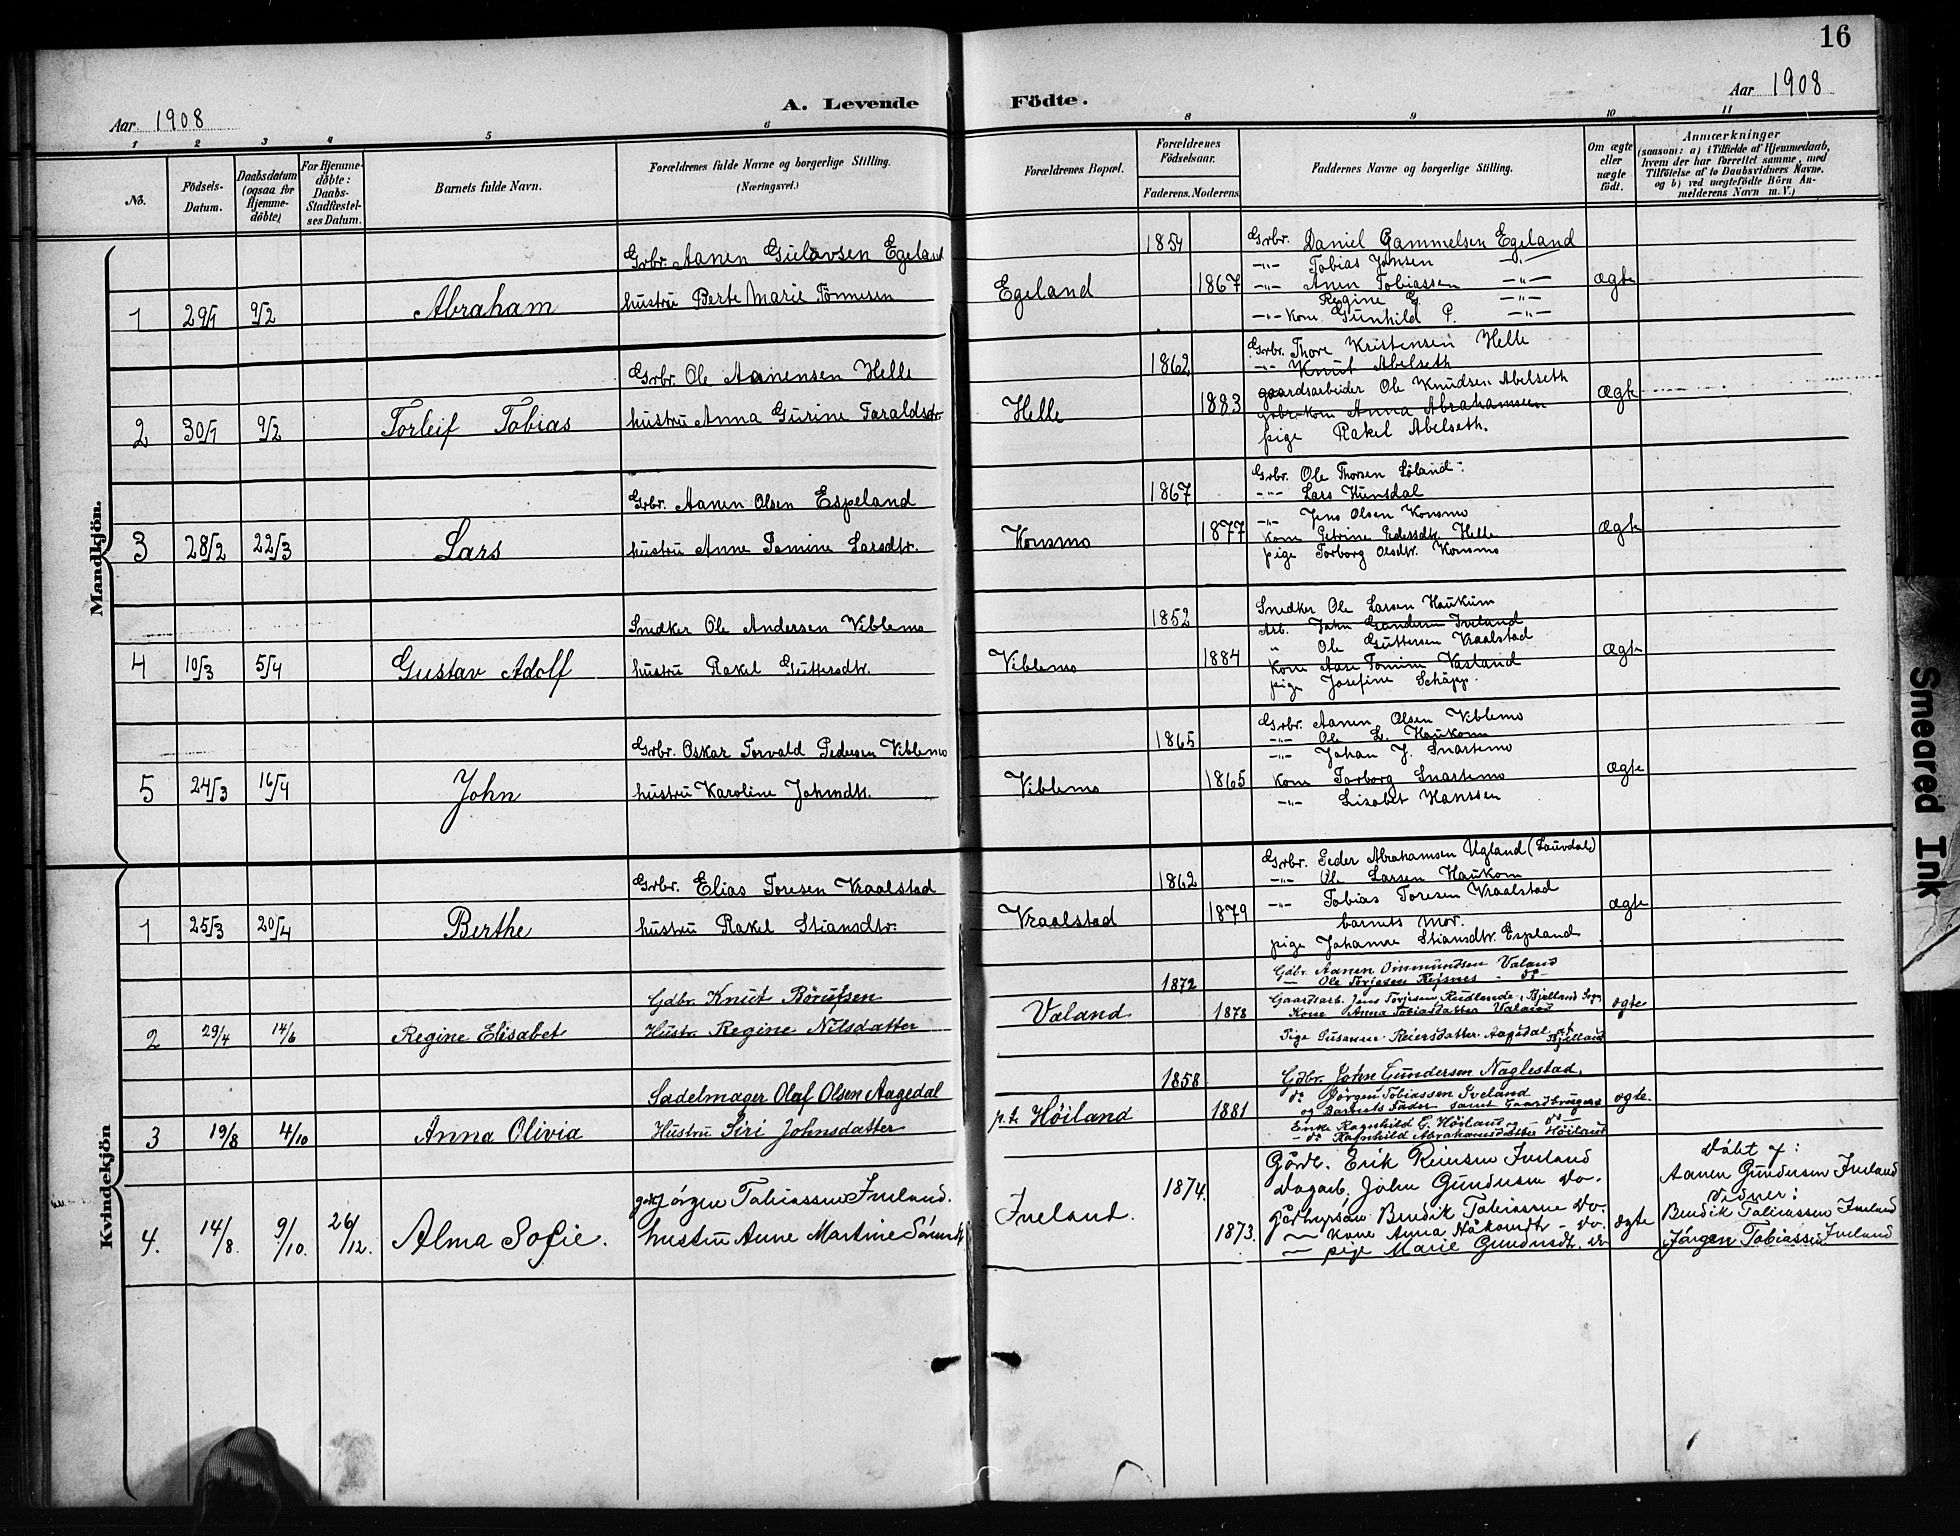 16
Aar 1908
A. Levende Födte.
Aar 1908
1 2 3 4 5 6 8 9 10 11
No.
Födsels-Datum.
Daabsdatum (ogsaa for Hjemmedöbte)
For Hjemmedöbte: Daabs-Stadfæstelses Datum.
Barnets fulde Navn.
Forældrenes fulde Navne og borgerlige Stilling. (Næringsvei.)
Forældrenes Bopæl.
Forældrenes Födselsaar.
Faderens. Moderens.
Faddernes Navne og borgerlige Stilling.
Om ægte eller uægte födt.
Anmærkninger
(saasom: a) i Tilfælde af Hjemmedaab,
hvem der har forrettet samme, med
Tilföielse af to Daabsvidners Navne.
og b) ved uægtefödte Börn Anmelderens Navn m. V.)
Mandkjön.
1 29/1 9/2 Abraham
Grbr. Aanen Gulovsen Egeland
hustru Berte Marie Tönnesen
Egeland 1854 1867
Grbr. Daniel Gammelsen Egeland
-"- Tobias Jonsen -"-
-"- Anen Tobiassen -"-
Regine G. -"-
-"- Kone Gunhild P. -"-
ægte
2 30/1 9/2 Torleif Tobias
Grbr. Ole Aanensen Helle
hustru Anna Gurine Taraldsdtr.
Helle 1862 1883
Grbr. Thore Kristensen Helle
-"- Knut Abelseth
gaardsarbeider Ole Knudsen Abelseth
grbr. kone Anna Abrahamsen
pige Rakel Abelseth.
Ægte
3 28/2 22/3 Lars
Grbr. Aanen Olsen Espeland
hustru Anne Tomine Larsdtr.
Konsmo 1867 1877
Grbr. Ole Thorsen Löland
-"- Lars Hunsdal
-"- Jens Olsen Konsmo
kone Petrine Pedersdtr. Helle
pige Torborg Olsdtr. Konsmo
Ægte
4 10/3 5/4 Gustav Adolf
Snedker Ole Andersen Viblemo
hustru Rakel Guttersdtr.
Viblemo 1852 1884
Snedker Ole Larsen Haukum
Arb. John Gundersen Iveland
" Ole Guttersen Vraalstad
kone Aase Tomine Vasland
pige Josefine Schäpp.
Ægte
5 24/3 16/4 John
Grbr. Oskar Torvald Pedersen Viblemo
hustru Karoline Johnsdtr.
Viblemo 1865 1865
Grbr. Aanen Olsen Viblemo
-"- Ole L. Haukom
-"- Johan J. Snartemo
kone Torborg Snartemo
-"- Lisabet Hanssen
Ægte
Kvindekjön
1 25/3 20/4 Berthe
Grbr. Elias Toresen Vraalstad
hustru Rakel Stiansdtr.
Vraalstad 1862 1879
Grbr. Peder Abrahamsen Ugland (Lauvdal)
-"- Ole Larsen Haukom
-"- Tobias Toresen Vraalstad
barnets mor.
pige Johanne Stiansdtr. Espland
ægte
2 29/4 14/6 Regine Elisabet
Gdbr. Knut Börufsen
Hustr. Regine Nilsdatter
Valand 1872 1878
Gdbr. Aanen Ommundsen Valand
— Ole Torjesen do
Gaardsarb. Jens Torjesen Rudlende, Bjelland Sogn
Kone Anna Tobiasdatter Valand
Pige Susanne Reiersdatter Aagedal af Bjelland
ægte
3 19/8 4/10 Anna Olivia
Sadelmager Olaf Olsen Aagedal
Hustru Siri Johnsdatter
p.t. Höiland 1858 1881
Gdbr. John Gundersen Naglestad,
do Jörgen Tobiassen Iveland
og Barnets Fader samt Gaardbrugers
Enke Ragnhild G. Höiland
— do Ragnhild Abrahamsdatter Höiland
ægte.
4. 14/8. 9/10. 26/12. Alma Sofie.
gdbr. Jörgen Tobiassen Iveland.
hustru Anne Martine Sörensdtr.
Iveland. 1874. 1873.
Gårdbr. Erik Reiersen Iveland
dagarb. John Gundersen do.
Gårdbrugersön Bendik Tobiassen do.
— kone Anna Håkonsdtr — do.
— pige Marie Gundersdtr. do
ægte
Döbt af:
Aanen Gundersen Iveland
Vidner:
Bendik Tobiassen Iveland
Jörgen Tobiassen Iveland
Smeared Ink